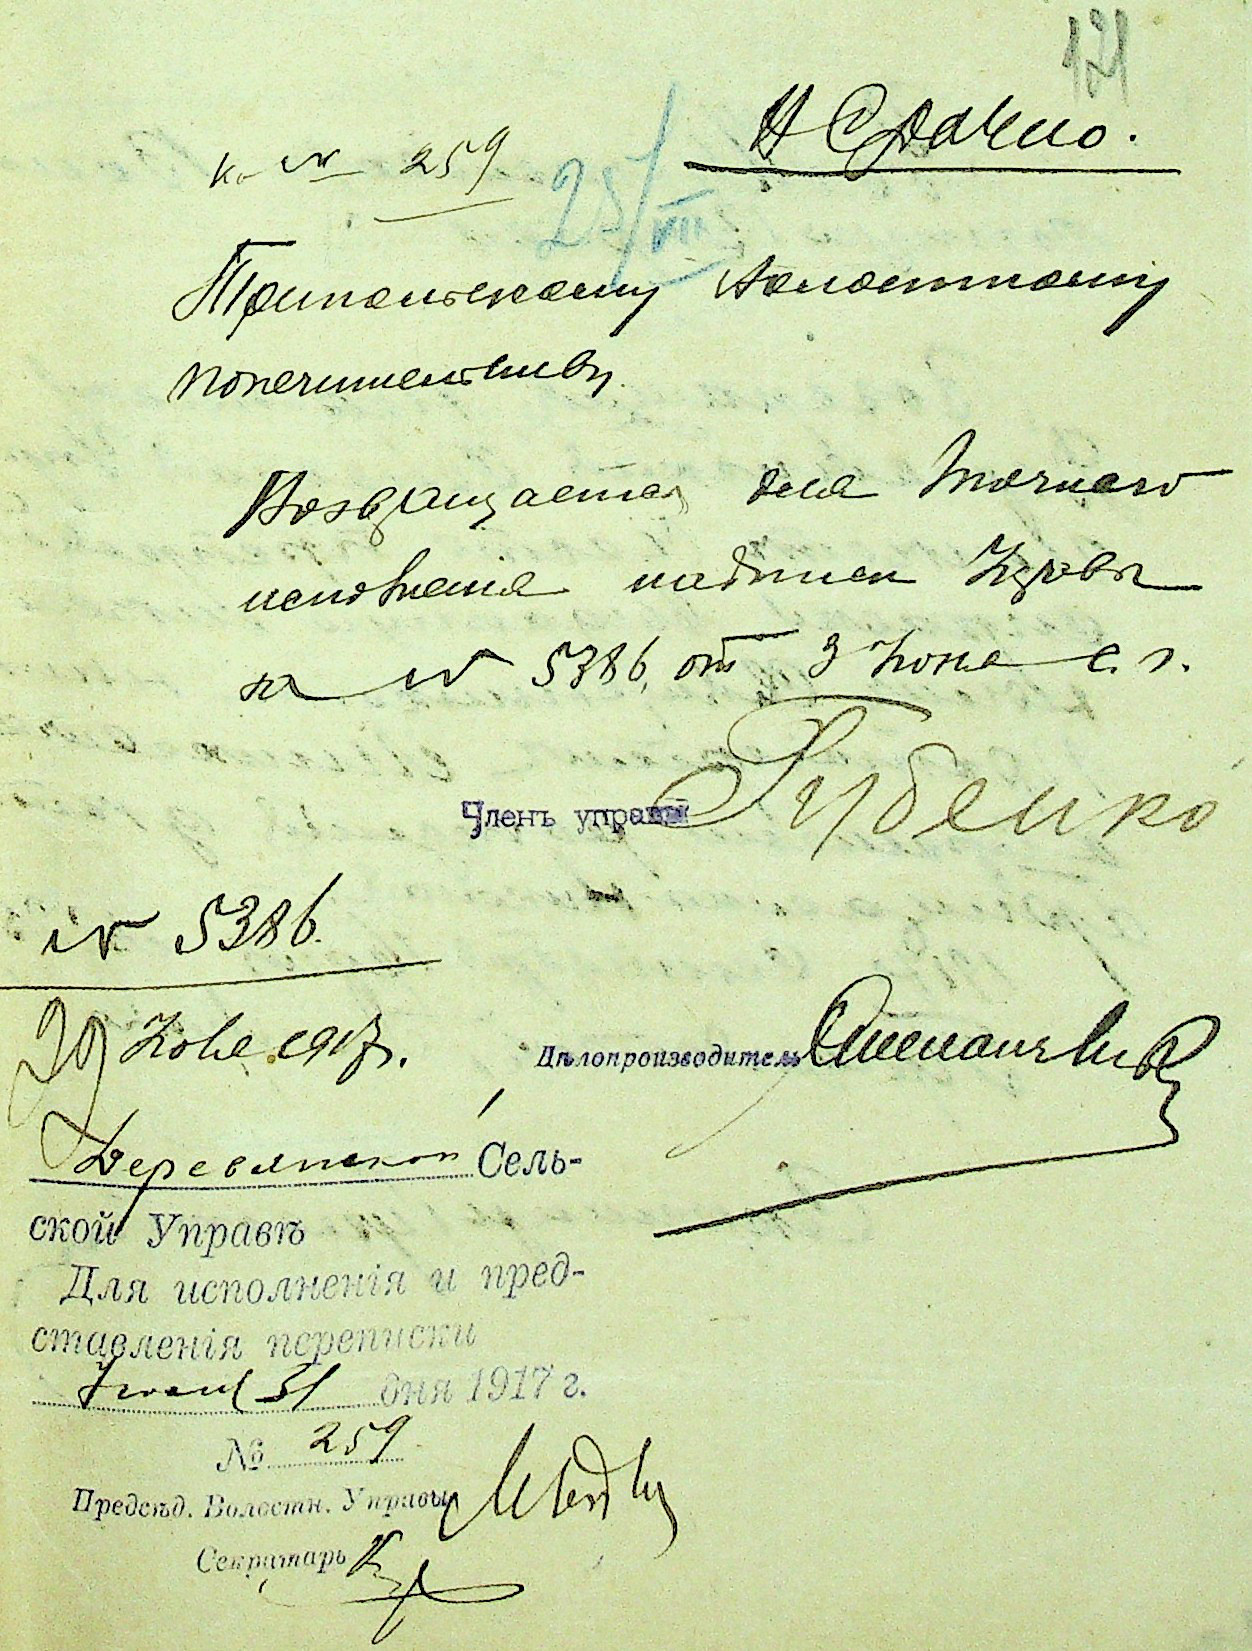 121
Срочно.
к № 259
25/VII
Трипольскому Волостному
попечительству.
Возвращается для точнаго
исполненія надписи Управы
за № 5386, от 3 Іюня с. г.
Членъ управы Губенко
№ 5386.
29 Іюля 1917 г.
Дѣлопроизводитель
Деревянской Сель-
ской Управѣ
Для исполненія и пред-
ставленія переписки
31 дня 1917 г.
№ 259
Предсѣд. Волостн. Управы
Секретарь